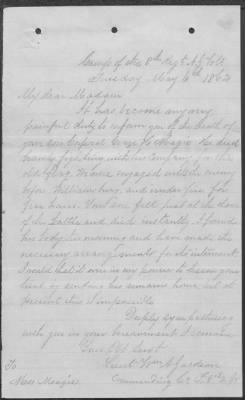 Camp of the 8th Regt N.J. Vols
Tuesday May 6th 1862
My dear Madam
It has become my very
painful duty to inform you of the death of
your son Corporal George Magie. He died
bravely fighting with his company for the
old flag. We were engaged with the enemy
before Williamsburg, and under fire for
five hours. Your son fell just at the close
of the battle and died instantly. I found
his body this morning and have made the
necessary arrangements for its interment.
I would that it were in my power to
sending his remains home, but at
present this is impossible
Deeply sympathising
with you in your bereavement I remain
Your Obt Servt
Lieut Wm
To Commanding Co 8th N.J.
Mrs. Magie